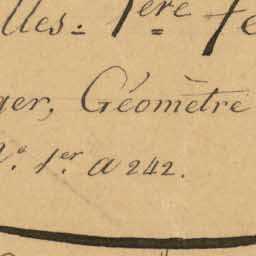 lles. 1ère Fe
ger, Géomètre
N.º 1.er a 242.